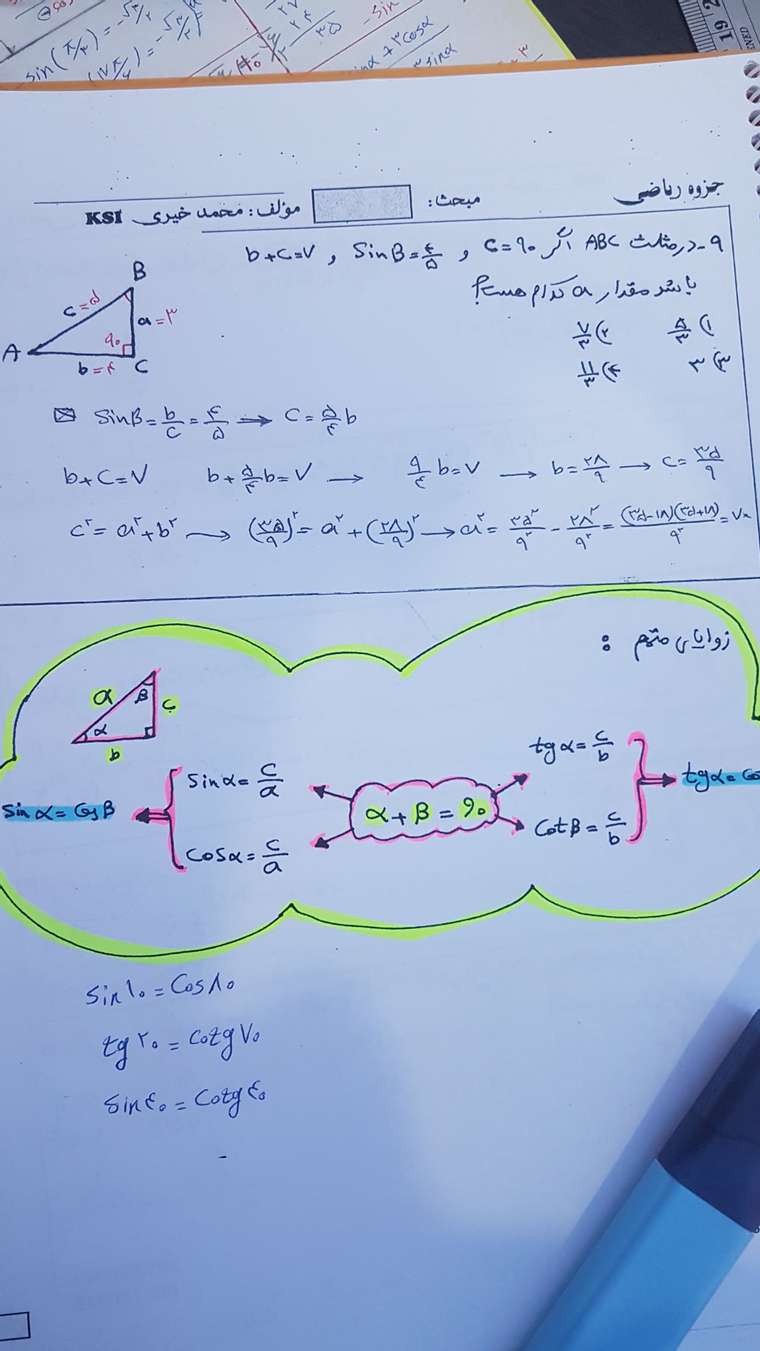 sin(π/۳) = -۵۳/۲
-sin
جزوه ریاضی
مبحث:
مؤلف: محمد خیری KSI
۹- در مثلث ABC اگر C=۹۰ و SinB=۴/۵ و b+c=۷
باشد مقدار a کدام هست؟
۱) ۵/۳ ۲) ۷/۳
۳) ۳ ۴) ۱۱/۳
B
c=۵
a=۳
A
۹۰
b=۴ C
SinB=b/c=۴/۵ → C=۵/۴ b
b+c=۷ b+۵/۴b=۷ → ۹/۴ b=۷ → b=۲۸/۹ → c=۳۵/۹
c²=a²+b² → (۳۵/۹)²=a²+(۲۸/۹)² → a²=۳۵²/۹² - ۲۸²/۹² = (۳۵-۲۸)(۳۵+۲۸)/۹² = ۷×
زوایای متمم :
a
β
c
α
b
Sinα=c/a
Cosα=c/a
Sinα=CosB
α+β=90
tgα=c/b
CotB=c/b
tgα=Co
Sin۱۰=Cos۸۰
tg۲۰=Cotg۷۰
Sin۴۰=Cotg۴۰